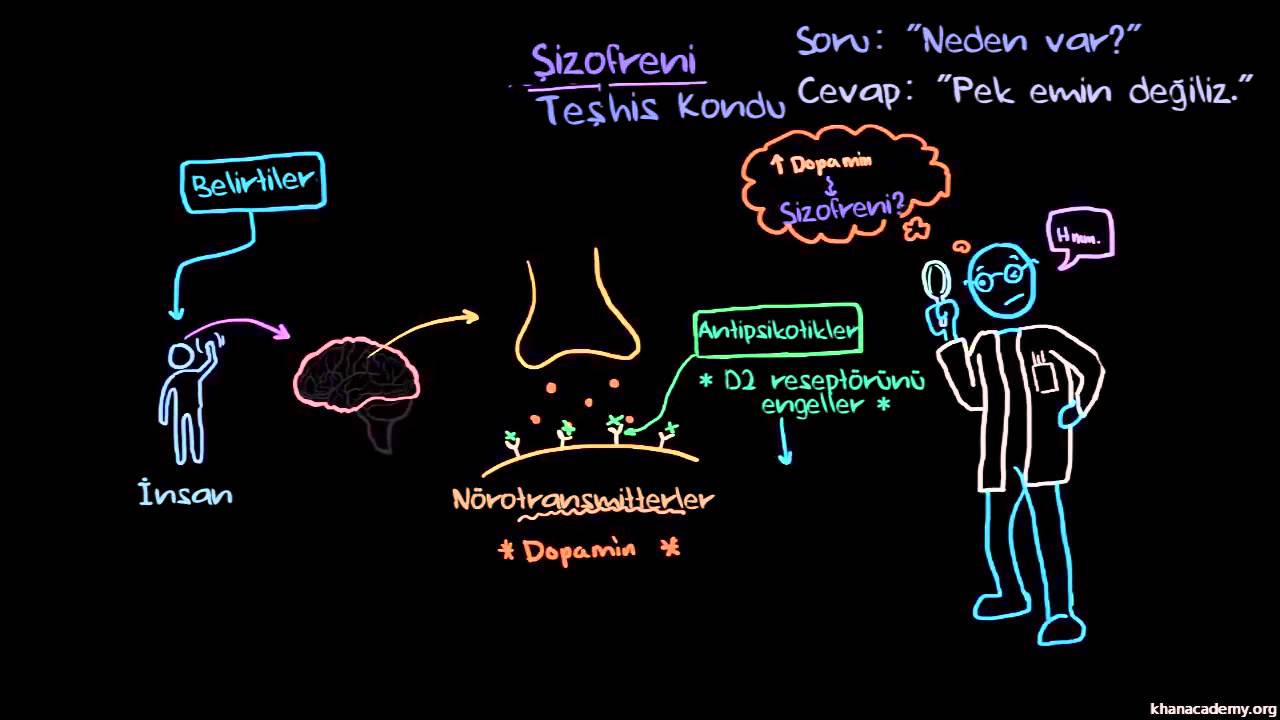 Şizofreni
Teşhis Kondu
Soru: "Neden var?"
Cevap: "Pek emin değiliz."
Belirtiler
↑ Dopamin
Şizofreni?
Hmm.
Antipsikotikler
* D2 reseptörünü
engeller *
İnsan
Nörotransmitterler
* Dopamin *
khanacademy.org